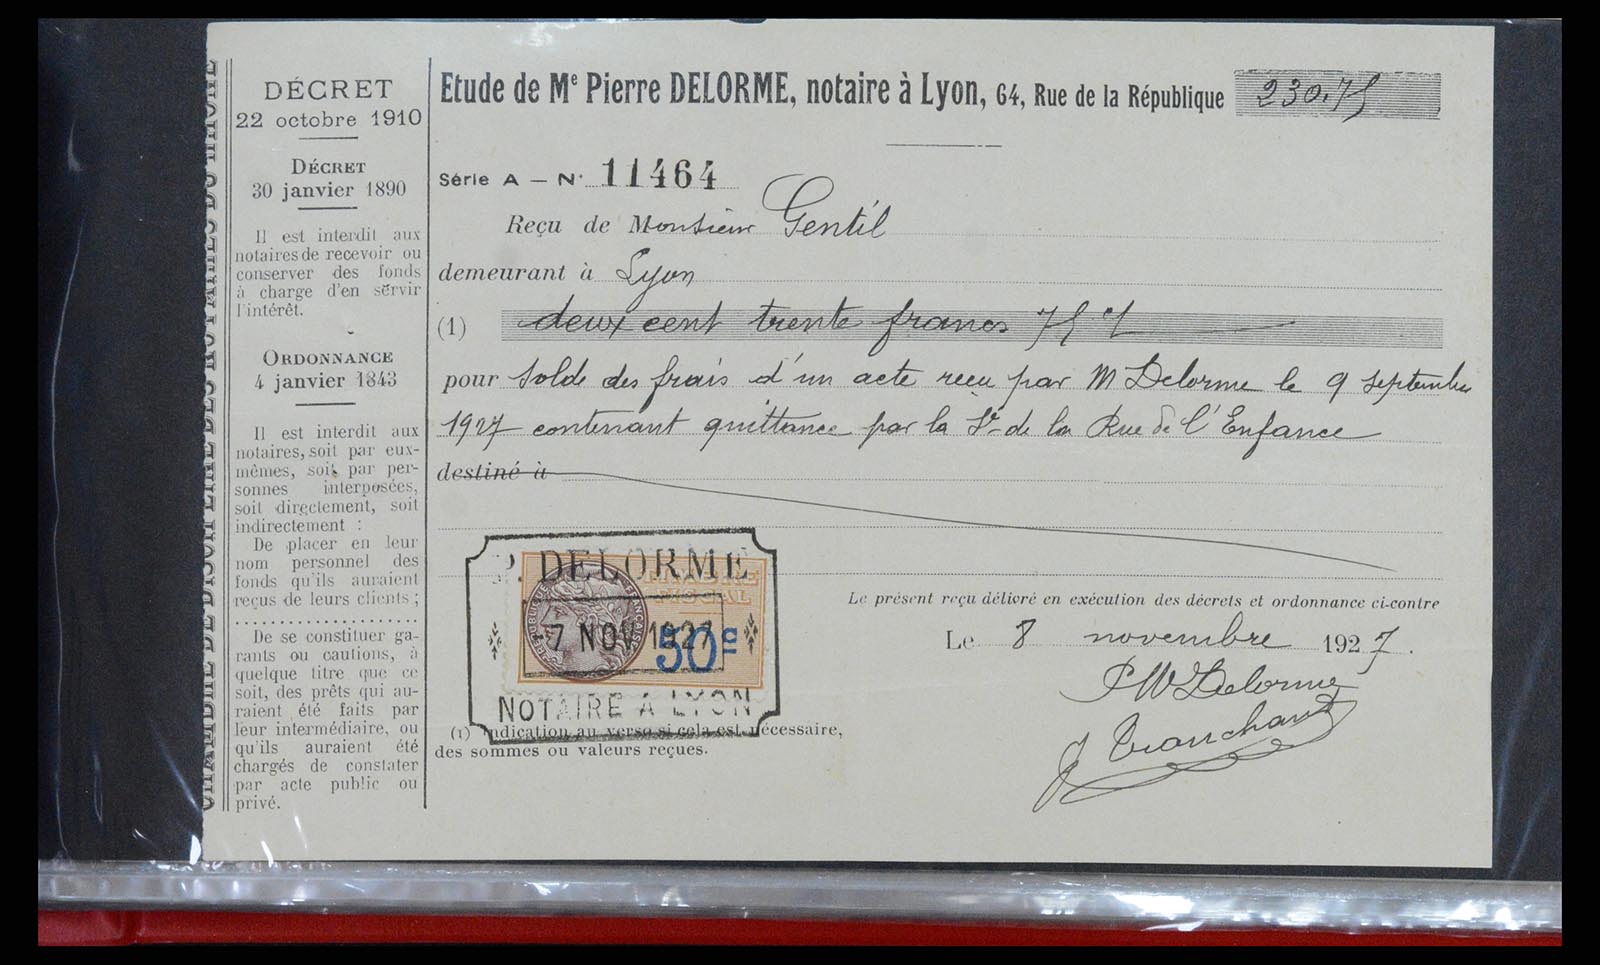 CHAMBRE DE DISCIPLINE DES NOTAIRES DU RHONE
DÉCRET
22 octobre 1910
DÉCRET
30 janvier 1890
Il est interdit aux
notaires de recevoir ou
conserver des fonds
à charge d'en servir
l'intérêt.
ORDONNANCE
4 janvier 1843
Il est interdit aux
notaires, soit par eux-
mêmes, soit par per-
sonnes interposées,
soit directement, soit
indirectement :
De placer en leur
nom personnel des
fonds qu'ils auraient
reçus de leurs clients ;
De se constituer ga-
rants ou cautions, à
quelque titre que ce
soit, des prêts qui au-
raient été faits par
leur intermédiaire, ou
qu'ils auraient été
chargés de constater
par acte public ou
privé.
Etude de Me Pierre DELORME, notaire à Lyon, 64, Rue de la République 230.75
Série A — N° 11464
Reçu de Monsieur Gentil
demeurant à Lyon
(1) deux cent trente francs 75 ct
pour solde des frais d'un acte reçu par M Delorme le 9 septembre
1927 contenant quittance par la Sté de la Rue de l'Enfance
destiné à
P. DELORME
TIMBRE
FISCAL
REPUBLIQUE FRANÇAISE
-7 NOV 1927
50c
NOTAIRE A LYON
Le présent reçu délivré en exécution des décrets et ordonnance ci-contre
Le 8 novembre 1927.
Delorme
(1) Indication au verso si cela est nécessaire,
des sommes ou valeurs reçues.